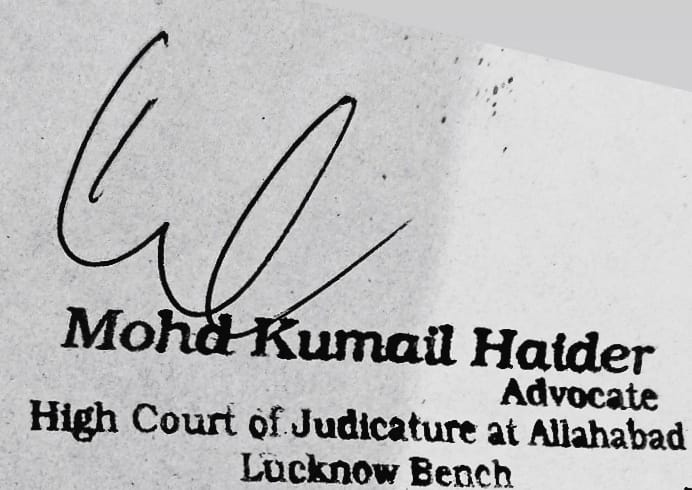 Mohd Kumail Haider
Advocate
High Court of Judicature at Allahabad
Lucknow Bench